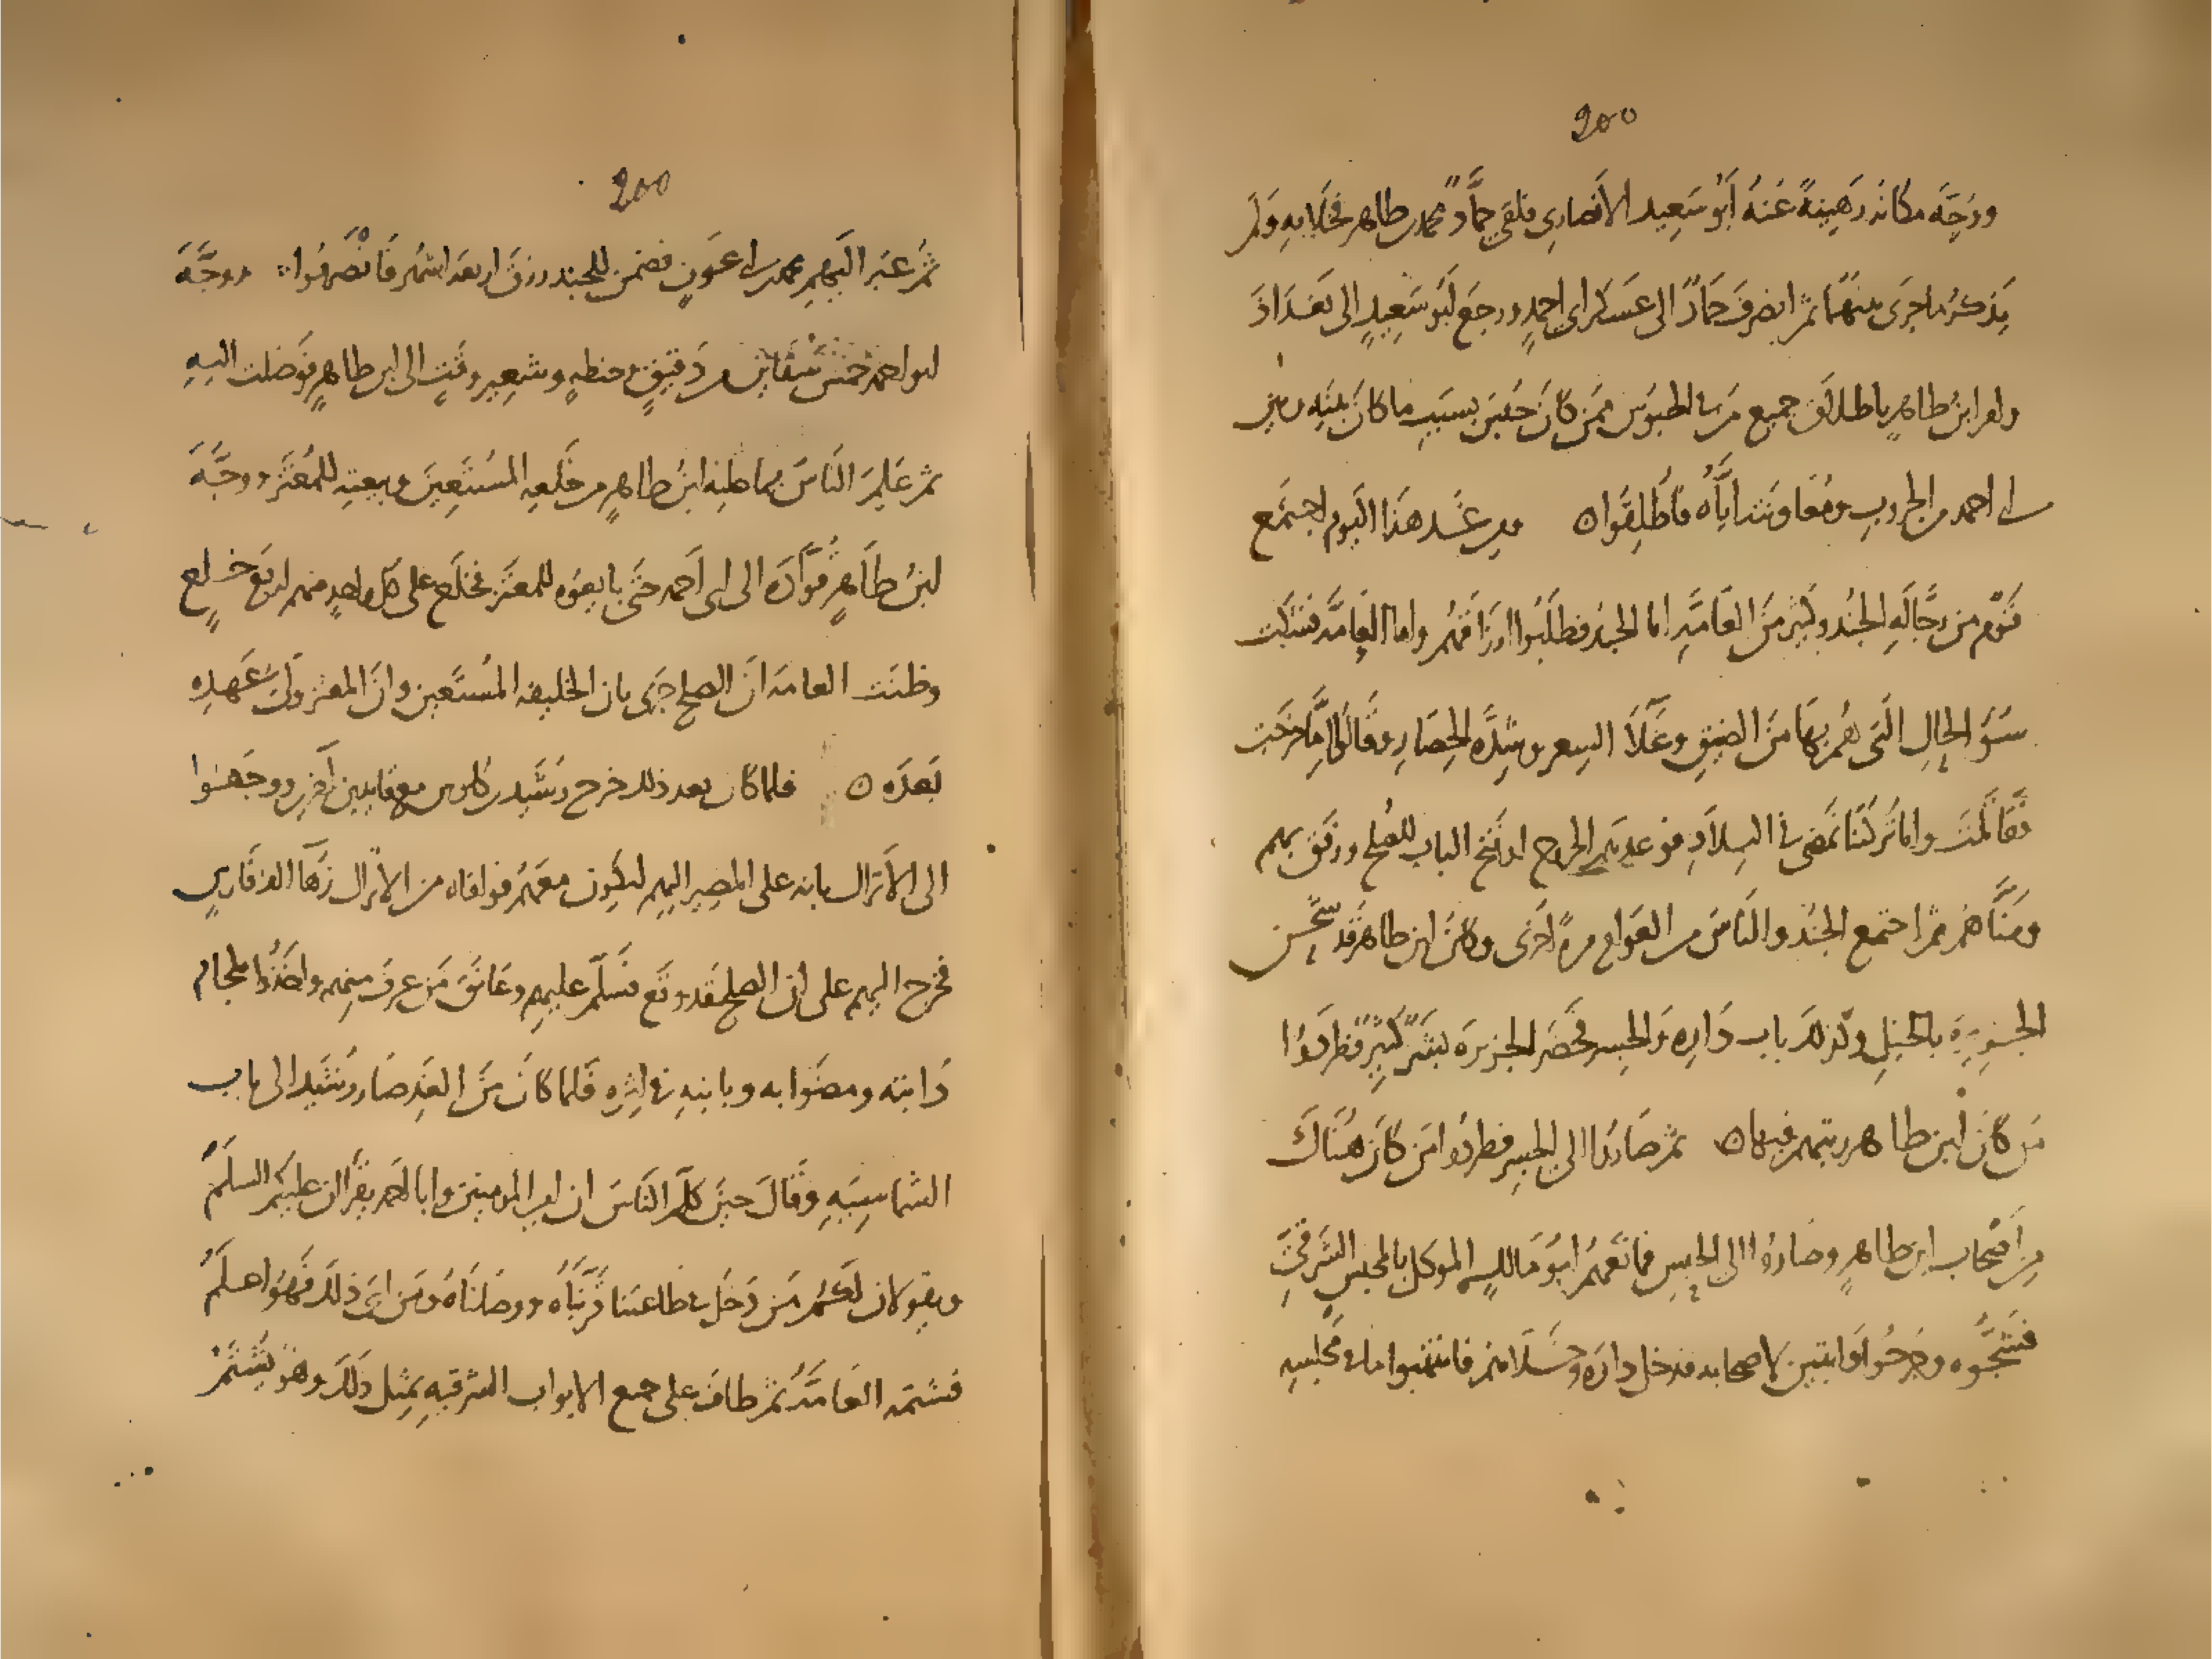 200
ووجه مكانه رهينة عنه أبو سعيد الانصاري فلقي حماد محمد بن طاهر فخلا به ولم
يذكر ما جرى بينهما ثم انصرف حماد الى عسكر ابي احمد ورجع ابو سعيد الى بغداد
وامر ابن طاهر باطلاق جميع من في الحبوس ممن كان حبس بسبب ما كان بينه وبين
ابي احمد من الحروب ومعاونته اياه فاطلقوا ه ومن غد هذا اليوم اجتمع
قوم من رجالة الجند وكثير من العامة اما الجند فطلبوا ارزاقهم واما العامة فشكت
سوء الحال التي هم بها من الضيق وغلا السعر وشدة الحصار وقالوا اما خرجت
فقاتلت واما تركتنا نمضي في البلاد فوعدهم الخروج او فتح الباب للصلح ورفق بهم
ومناهم ثم اجتمع الجند والناس من العوام مرة اخرى وكان ابن طاهر قد شحن
الجزيرة بالخيل وكذلك باب داره والجسر فحضر الجزيرة بشر كثير فطردوا
من كان ابن طاهر رتبهم فيها ه ثم صاروا الى الجسر فطردوا من كان هناك
من أصحاب ابن طاهر وصاروا الى الحبس فمانعهم ابو مالك الموكل بالحبس الشرقي
فشجوه وجرحوا دابتين لاصحابه فدخل داره وخلاهم فانتهبوا ما في مجلسه
200
ثم عبر اليهم محمد بن ابي عون فضمن للجند رزق اربعة اشهر فانصرفوا ووجه
ابو احمد خمس سفاين من دقيق وحنطة وشعير وقت الى ابن طاهر فوصلت اليه
ثم علم الناس بما عليه ابن طاهر من خلعه المستعين وبيعته للمعتز ووجه
ابن طاهر قواده الى ابي احمد حتى بايعوه للمعتز فخلع على كل واحد منهم اربع خلع
وظنت العامة ان الصلح جرى بان الخليفة المستعين وان المعتز ولي عهده
بعده ه فلما كان بعد ذلك خرج رشيد بن كاوس مع قايدين آخرين ووجهوا
الى الاتراك بانه على المصير اليهم ليكون معهم فوافاه من الاتراك زها الف فارس
فخرج اليهم على ان الصلح قد وقع فسلم عليهم وعانق من عرف منهم واخذوا بلجام
دابته ومضوا به وبابنه في اثره فلما كان من الغد صار رشيد الى باب
الشماسيه وقال حين كلم الناس ان امير المومنين وابا احمد يقرآن عليكم السلم
ويقولان لكم من دخل في طاعتنا قربناه ووصلناه ومن ابى ذلك فهو اعلم
فشتمه العامة ثم طاف على جميع الابواب الشرقيه بمثل ذلك وهو يشتم